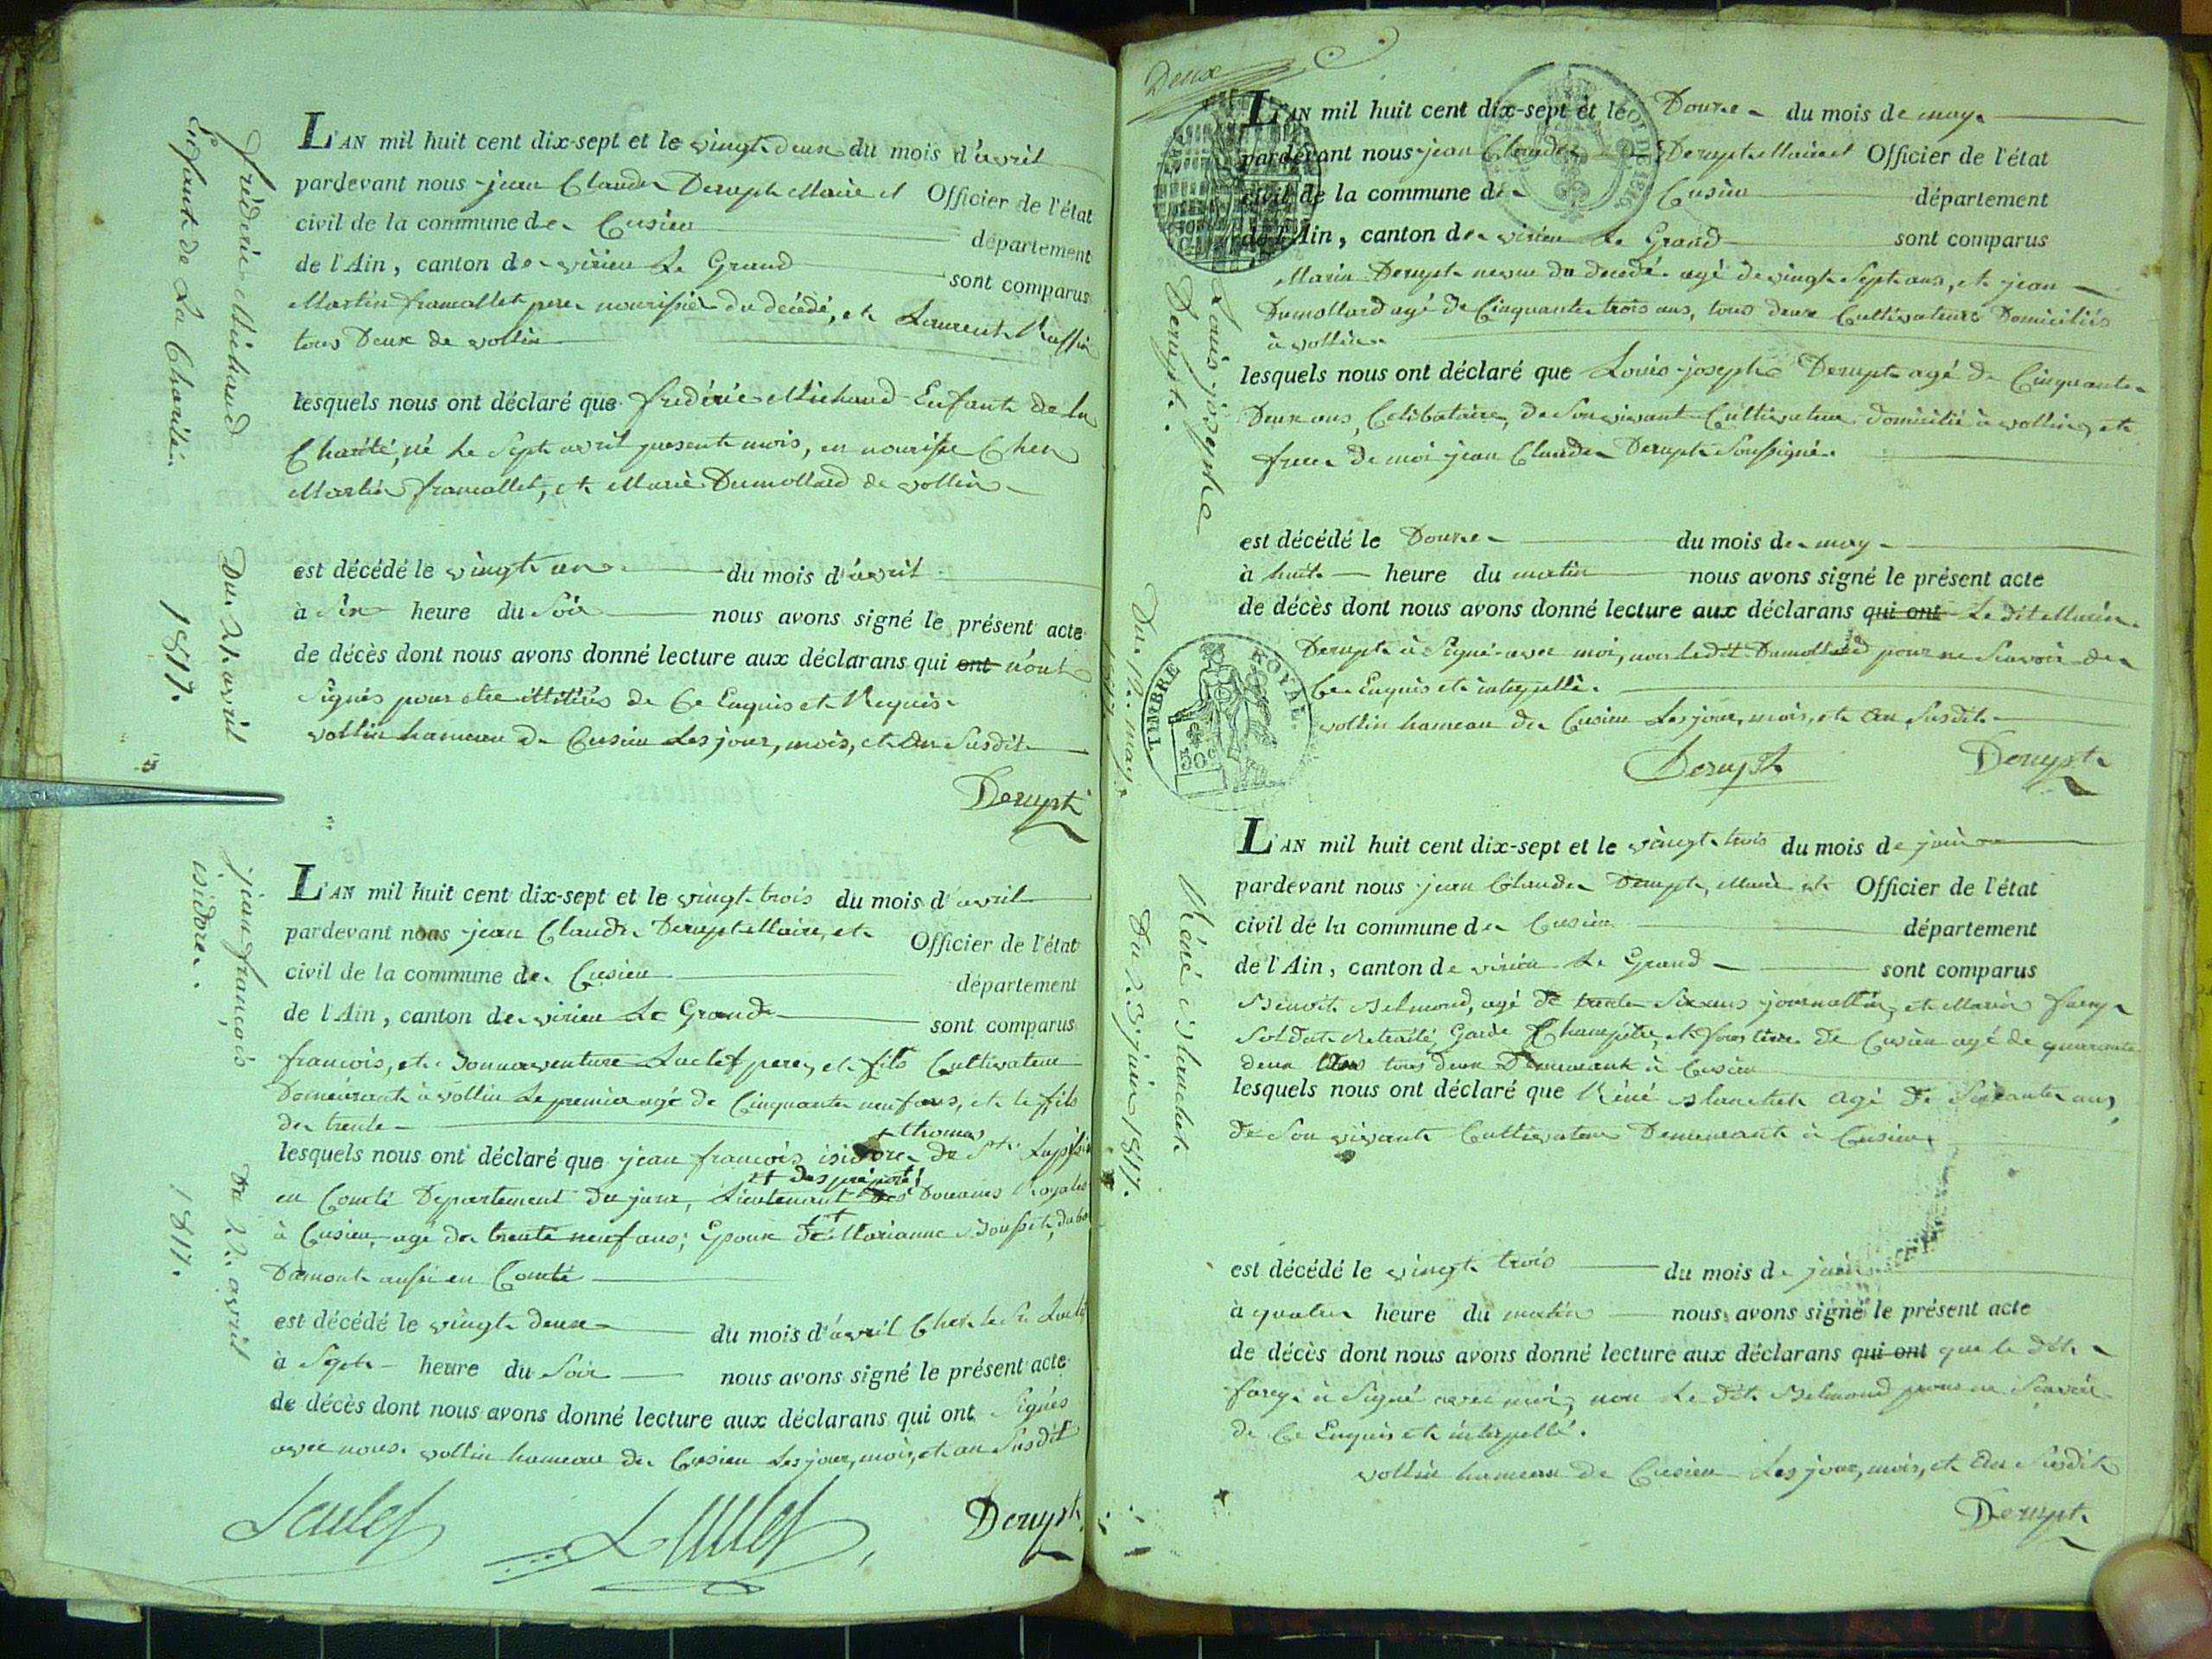 frédéric Michaud
Enfant de La Charité.
Du 21. avril
1817.
L'AN mil huit cent dix-sept et le vingt deux du mois d'avril
pardevant nous jean Claude Derupt Maire et Officier de l'état
civil de la commune de Cusieu département
de l'Ain, canton de virieu Le Grand sont comparus
Martin francallet pere nourissier du décédé, et Laurent Ruffin
tous Deux de vollin
lesquels nous ont déclaré que frédéric Michaud Enfant de la
Charité, né le Sept avril present mois, en nourisse Chez
Martin francallet, et Marie Dumollard de vollin
est décédé le vingt un du mois d'avril
à Six heure du Soir nous avons signé le présent acte
de décès dont nous avons donné lecture aux déclarans qui ont n'ont
Signés pour etre illitérés de Ce Enquis et Requis.
vollin hameau de Cusieu Les jour, mois, et An Susdit
Derupt
jean françois
isidore.
Du 22. avril
1817.
L'AN mil huit cent dix-sept et le vingt trois du mois d'avril
pardevant nous jean Claude Derupt Maire, et Officier de l'état
civil de la commune de Cusieu département
de l'Ain, canton de virieu Le Grand sont comparus
francois, et Bonnaventure Luclef pere, et fils Cultivateur
Demeurant à vollin Le premier agé de Cinquante neuf ans, et le fils
de trente
+ thomas
lesquels nous ont déclaré que jean francois isidore de Ste
++ des préposé
en Comté Departement du jura, Lieutenant des Douanes Royales
à Cusieu, agé de trente neuf ans; Epoux de Marianne
Damont aussi en Comté
est décédé le vingt deux du mois d'avril Chez le Sr.
à Sept heure du Soir nous avons signé le présent acte
de décès dont nous avons donné lecture aux déclarans qui ont Signés
avec nous. vollin hameau de Cusieu Les jour, mois, et an Susdit
Derupt
Deux
Louis joseph
Derupt.
Du 12. may
1817.
L'AN mil huit cent dix-sept et le Douze du mois de may
pardevant nous jean Claude Derupt Maire et Officier de l'état
civil de la commune de Cusieu département
de l'Ain, canton de virieu Le Grand sont comparus
Marin Derupt neveu du decedé agé de vingt Sept ans, et jean
Dumollard agé de Cinquante trois ans, tous deux Cultivateurs Domiciliés
à vollin
lesquels nous ont déclaré que Louis joseph Derupt agé de Cinquante
Deux ans, Celibataire, de Son vivant Cultivateur domicilié à vollin, et
frere de moi jean Claude Derupt Soussigné.
est décédé le Douze du mois de may
à huit heure du matin nous avons signé le présent acte
de décès dont nous avons donné lecture aux déclarans qui ont Le dit Marin
Derupt à Signé avec moi, non ledit Dumollard pour ne Scavoir de
Ce Enquis et interpellé.
vollin hameau de Cusieu Les jour, mois, et An Susdit
TIMBRE ROYAL
50c
Derupt Derupt
Réné Blanchet
Du 23 juin 1817.
L'AN mil huit cent dix-sept et le vingt trois du mois de juin
pardevant nous jean Claude Derupt, Maire et Officier de l'état
civil de la commune de Cusieu département
de l'Ain, canton de virieu Le Grand sont comparus
Benoit Belmond, agé de trente Six ans journallier, et Marin farey
Soldat Retraité, Garde Champêtre, et forestier de Cusieu agé de quarante
deux ans tous deux Demeurant à Cusieu
lesquels nous ont déclaré que Réné Blanchet agé de Soixante ans,
de Son vivant Cultivateur Demeurant à Cusieu
est décédé le vingt trois du mois de juin
à quatre heure du matin nous avons signé le présent acte
de décès dont nous avons donné lecture aux déclarans qui ont que le dit
farey à Signé avec moi, non Le dit Belmond pour ne Scavoir
de Ce Enquis et interpellé.
vollin hameau de Cusieu Les jour, mois, et An Susdit
Derupt